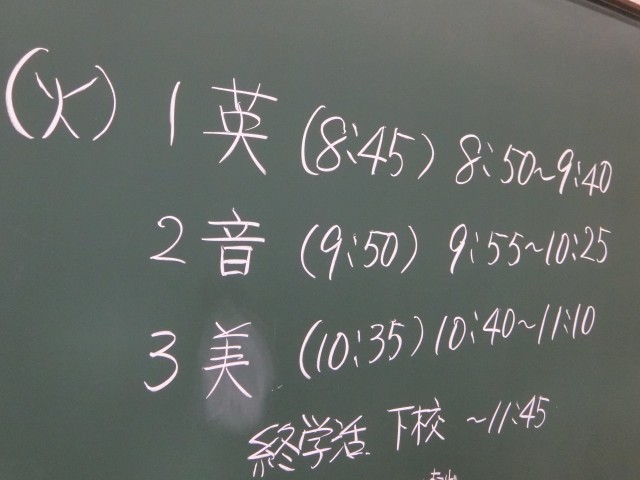 (火) 1 英 (8:45) 8:50~9:40
2 音 (9:50) 9:55~10:25
3 美 (10:35) 10:40~11:10
終学活 下校 ~11:45